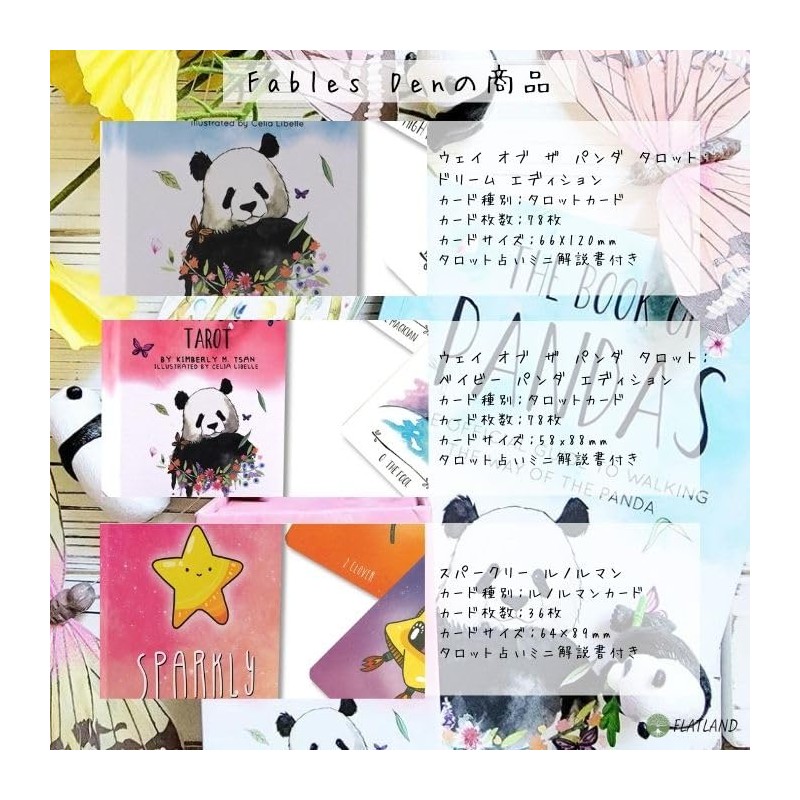 Fables Denの商品
Illustrated by Celia Libelle
HIGH
ウェイ オブ ザ パンダ タロット:
ドリーム エディション
カード種別:タロットカード
カード枚数:78枚
カードサイズ:66X120mm
タロット占いミニ解説書付き
THE BOOK OF
PANDAS
TO WALKING
THE WAY OF THE PANDA
TAROT
BY KIMBERLY M. TSAN
ILLUSTRATED BY CELIA LIBELLE
MAGICIAN
0 THE FOOL
ウェイ オブ ザ パンダ タロット:
ベイビー パンダ エディション
カード種別:タロットカード
カード枚数:78枚
カードサイズ:58x88mm
タロット占いミニ解説書付き
SPARKLY
2 CLOVER
スパークリー ルノルマン
カード種別:ルノルマンカード
カード枚数:36枚
カードサイズ:64×89mm
タロット占いミニ解説書付き
FLATLAND